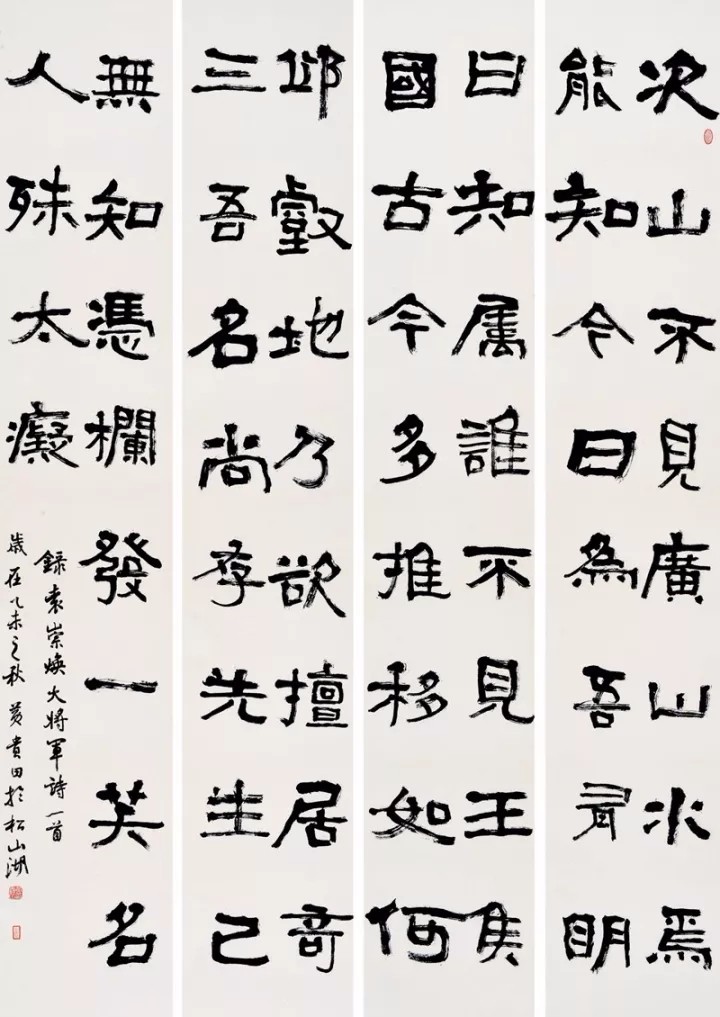 次山不見廣山水焉
能知今日為吾有明
日知属誰不見王侯
國古今多推移如何
邱壑地乃欲擅居奇
三吾名尚存先生已
無知憑欄發一笑名
人殊太癡
録袁崇焕大將軍詩一首
歲在乙未之秋黄貴田於松山湖